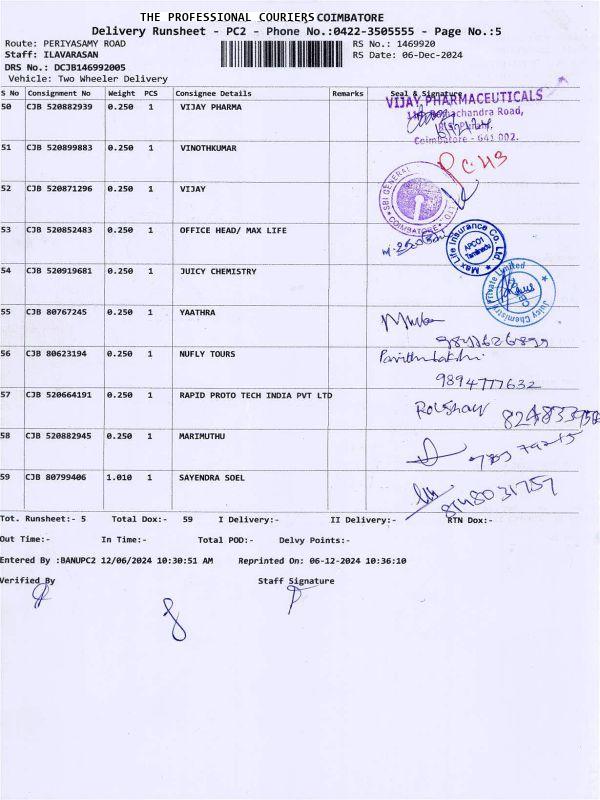 THE PROFESSIONAL COURIERS COIMBATORE
Delivery Runsheet - PC2 - Phone No.:0422-3505555 - Page No.:5
Route: PERIYASAMY ROAD RS No.: 1469920
Staff: ILAVARASAN RS Date: 06-Dec-2024
DRS No.: DCJB146992005
Vehicle: Two Wheeler Delivery
S No Consignment No Weight PCS Consignee Details Remarks Seal & Signature
50 CJB 520882939 0.250 1 VIJAY PHARMA
VIJAY PHARMACEUTICALS
Coimbatore - 641 002.
51 CJB 520899883 0.250 1 VINOTHKUMAR
52 CJB 520871296 0.250 1 VIJAY
SBI GENERAL COIMBATORE
53 CJB 520852483 0.250 1 OFFICE HEAD/ MAX LIFE
Max Life Insurance Co. Ltd.
APC01
Tamilnadu
54 CJB 520919681 0.250 1 JUICY CHEMISTRY
Juicy Chemistry Private Limited
55 CJB 80767245 0.250 1 YAATHRA
56 CJB 80623194 0.250 1 NUFLY TOURS
9894777632
57 CJB 520664191 0.250 1 RAPID PROTO TECH INDIA PVT LTD
58 CJB 520882945 0.250 1 MARIMUTHU
59 CJB 80799406 1.010 1 SAYENDRA SOEL
8148031757
Tot. Runsheet:- 5 Total Dox:- 59 I Delivery:- II Delivery:- RTN Dox:-
Out Time:- In Time:- Total POD:- Delvy Points:-
Entered By :BANUPC2 12/06/2024 10:30:51 AM Reprinted On: 06-12-2024 10:36:10
Verified By Staff Signature